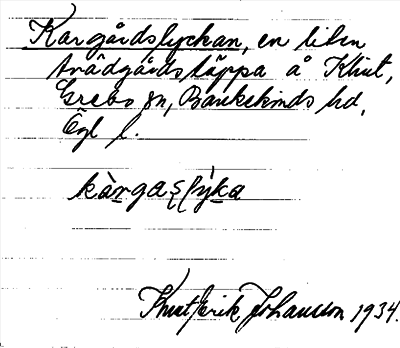 Kargårdslyckan, en liten
trädgårdstäppa å Klint,
Grebo sn, Bankekinds hd,
Ögl l.
kàrgaslỳka
Knut-Erik Johansson 1934.